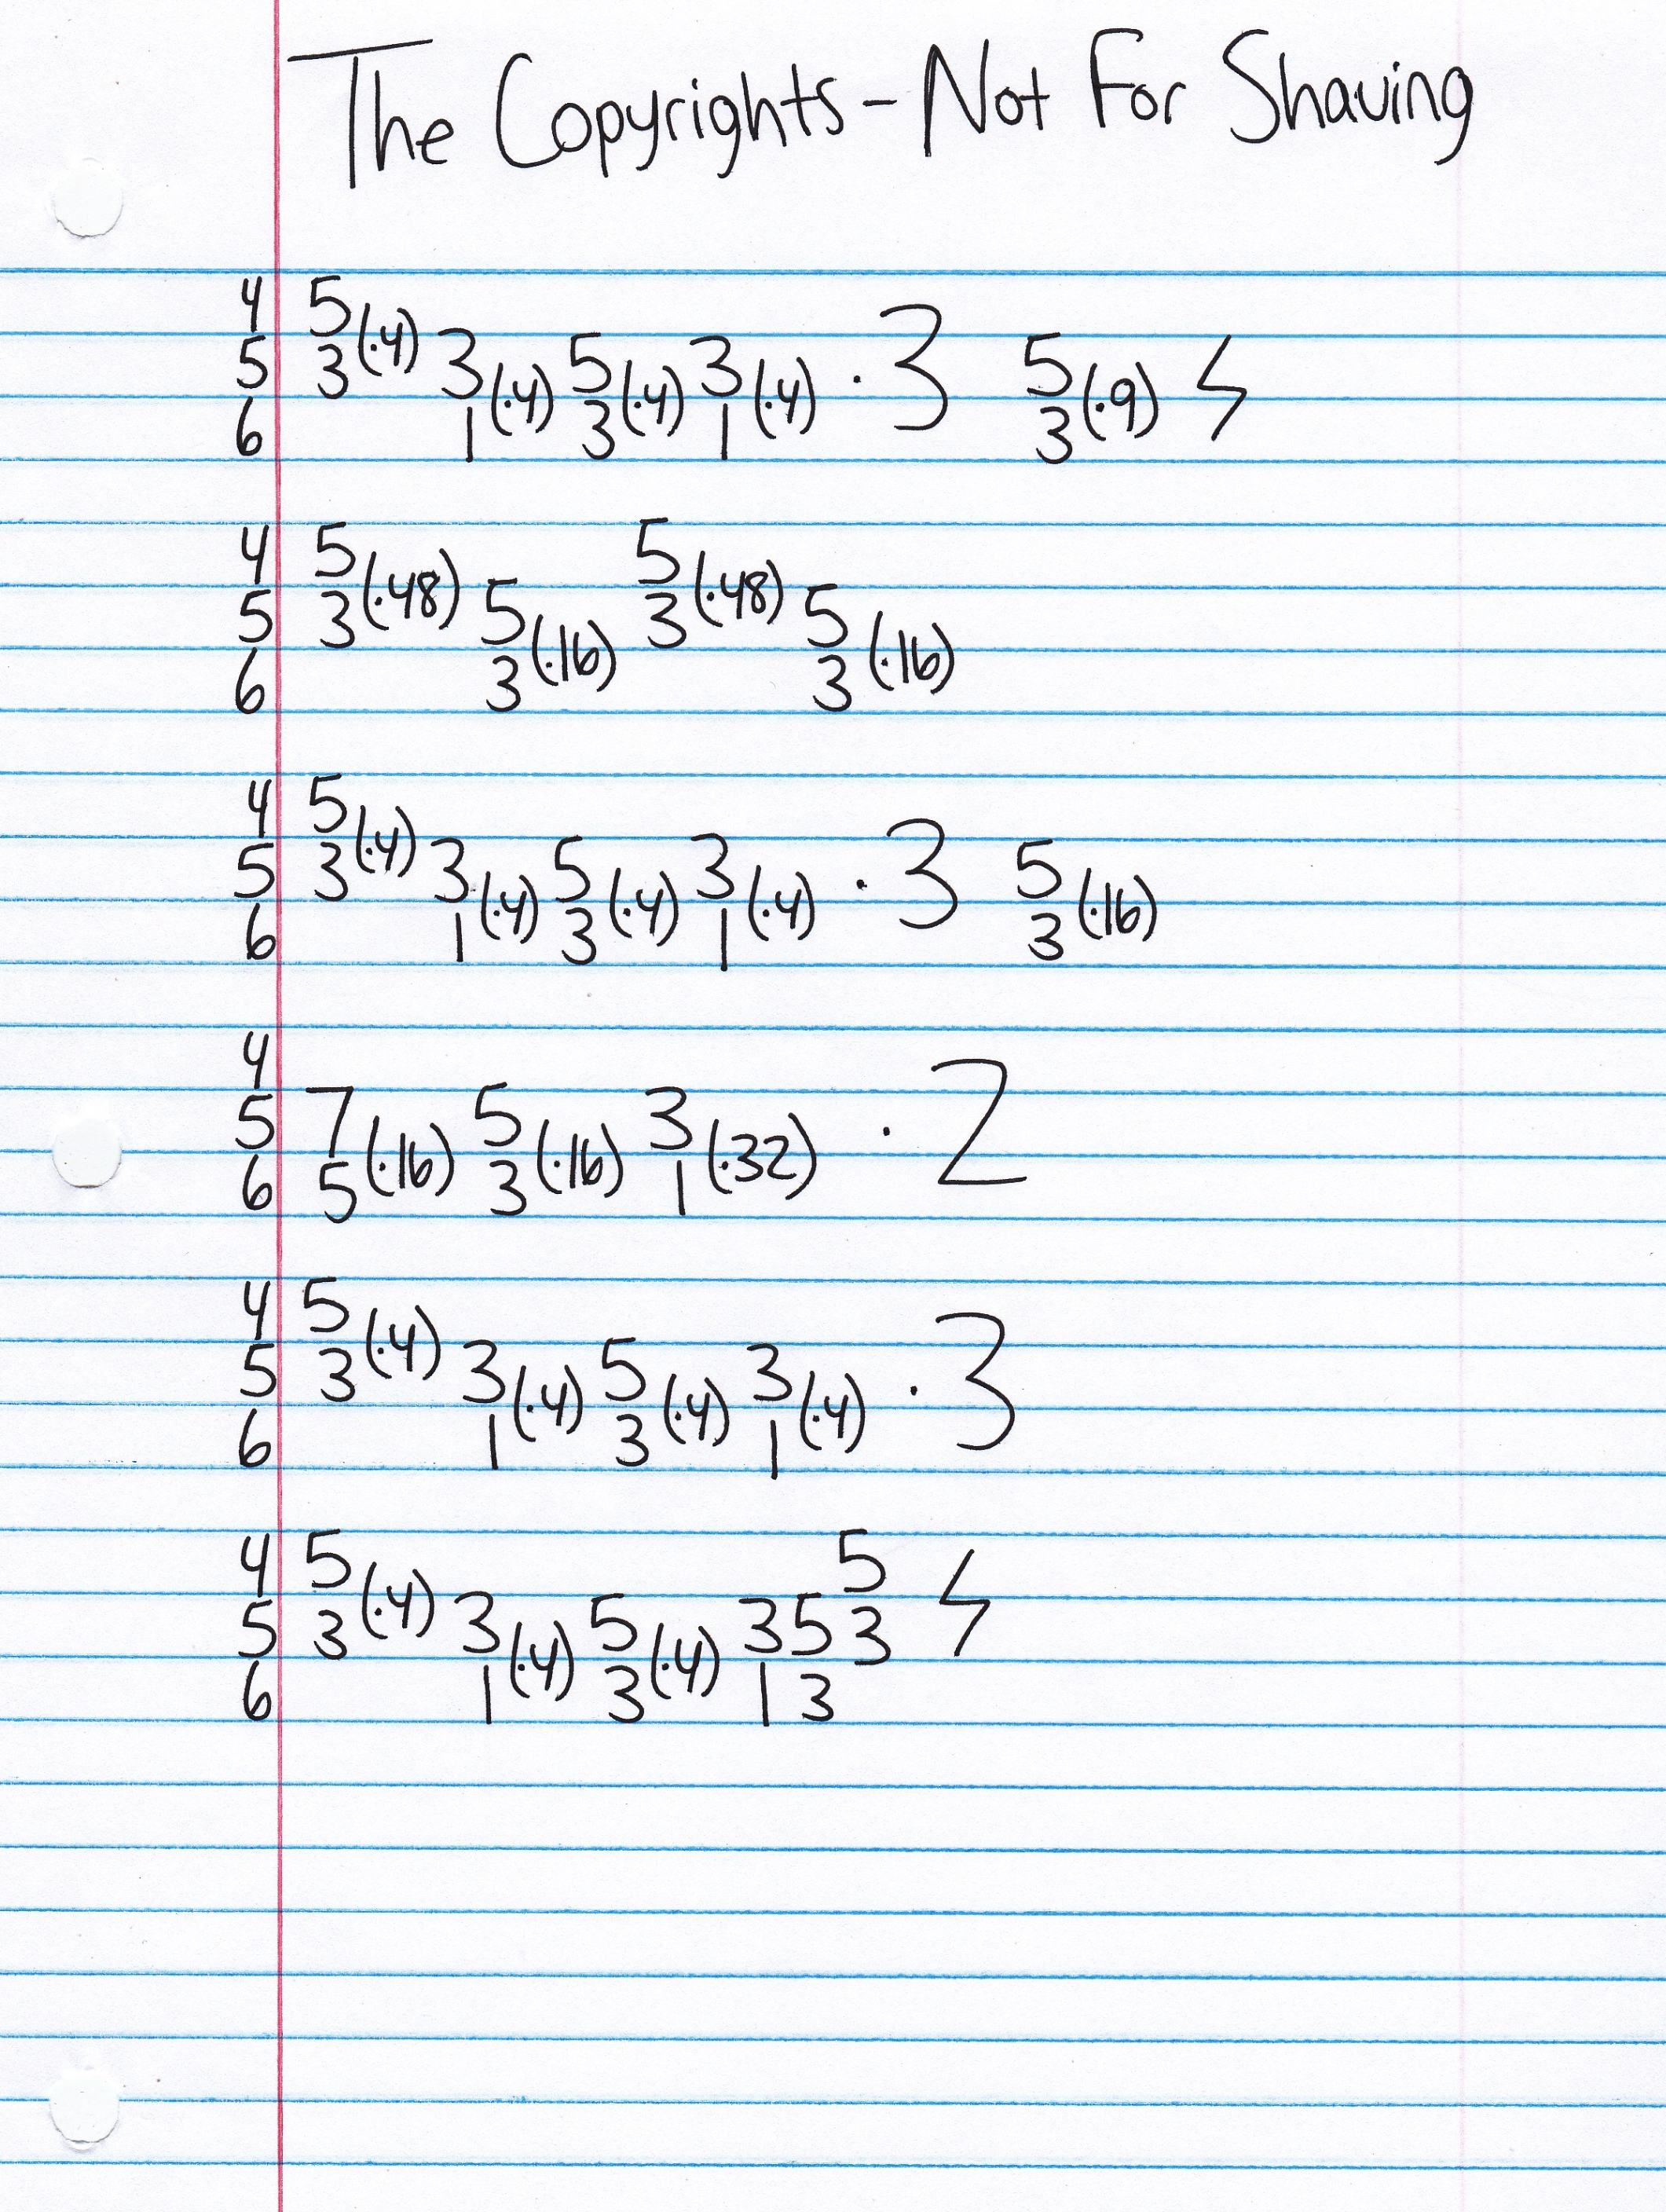 The Copyrights - Not For Shaving
4 5
5 3(·4) 3 5 3 · 3 5
6 1(·4) 3(·4) 1(·4) 3(·9) ϟ
4 5 5
5 3(·48) 5 3(·48) 5
6 3(·16) 3(·16)
4 5
5 3(·4) 3 5 3 · 3 5
6 1(·4) 3(·4) 1(·4) 3(·16)
4
5 7 5 3 · 2
6 5(·16) 3(·16) 1(·32)
4 5
5 3(·4) 3 5 3 · 3
6 1(·4) 3(·4) 1(·4)
4 5 5 ϟ
5 3(·4) 3 5 3 5 3
6 1(·4) 3(·4) 1 3